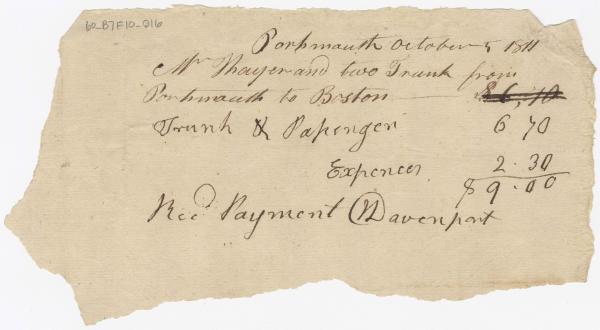 60_B7F10_016
Portsmouth October 5 1811
Mr Thayer and two Trunk from
Portsmouth to Boston
Trunk & Pasenger 6 70
Expences 2.30
$ 9.00
Recd Payment Davenport